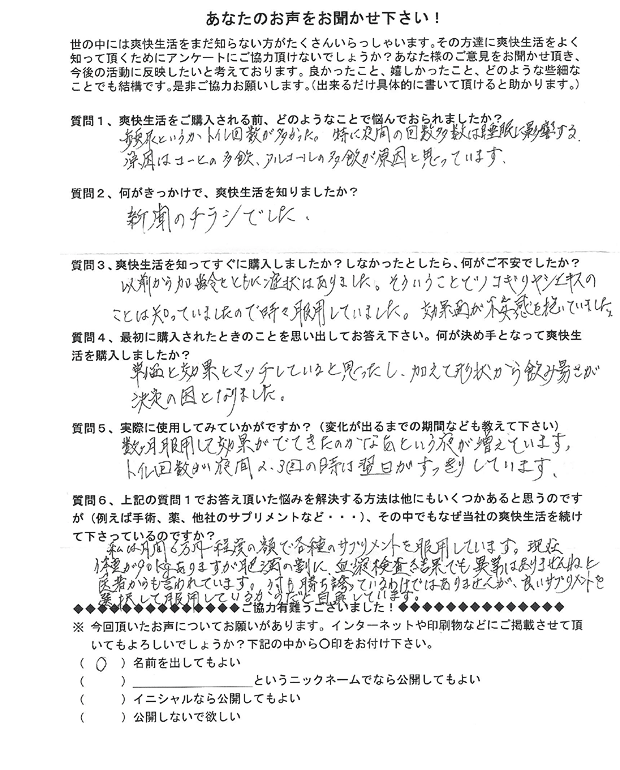 あなたのお声をお聞かせ下さい！
世の中には爽快生活をまだ知らない方がたくさんいらっしゃいます。その方達に爽快生活をよく
知って頂くためにアンケートにご協力頂けないでしょうか？あなた様のご意見をお聞かせ頂き、
今後の活動に反映したいと考えております。良かったこと、嬉しかったこと、どのような些細な
ことでも結構です。是非ご協力お願いします。（出来るだけ具体的に書いて頂けると助かります。）
質問１、爽快生活をご購入される前、どのようなことで悩んでおられましたか？
頻尿というかトイレ回数が多かった。特に夜間の回数多数は睡眠に影響する。
原因はコーヒーの多飲、アルコールの多飲が原因と思っています、
質問２、何がきっかけで、爽快生活を知りましたか？
新聞のチラシでした、
質問３、爽快生活を知ってすぐに購入しましたか？しなかったとしたら、何がご不安でしたか？
以前から加齢とともに症状はありました。そういうことでノコギリヤシエキスの
ことは知っていましたので時々服用していました。効果面が不安感を抱いていました
質問４、最初に購入されたときのことを思い出してお答え下さい。何が決め手となって爽快生
活を購入しましたか？
単価と効果とマッチしていると思ったし、加えて形状から飲み易さが
決定の因となりました。
質問５、実際に使用してみていかがですか？（変化が出るまでの期間なども教えて下さい）
数ヶ月服用して効果がでてきたのかなあという夜が増えています。
トイレ回数が夜間2、3回の時は翌日がすっきりしています、
質問６、上記の質問１でお答え頂いた悩みを解決する方法は他にもいくつかあると思うのです
が（例えば手術、薬、他社のサプリメントなど・・・）、その中でもなぜ当社の爽快生活を続け
て下さっているのですか？
私は月間 万円程度の額で各種のサプリメントを服用しています。現在
体重が ありますが肥満の割に、血液検査結果でも異常はありませんねと
医者からも言われています。 勝ち誇っているわけではありませんが、良いサプリメントを
選択して服用しているからだと自負しています。
◆◆◆◆◆◆◆◆◆◆◆◆◆ご協力有難うございました！◆◆◆◆◆◆◆◆◆◆◆◆◆
※ 今回頂いたお声についてお願いがあります。インターネットや印刷物などにご掲載させて頂
いてもよろしいでしょうか？下記の中から〇印をお付け下さい。
（ ○ ）名前を出してもよい
（ ）＿＿＿＿＿＿＿＿＿というニックネームでなら公開してもよい
（ ）イニシャルなら公開してもよい
（ ）公開しないで欲しい